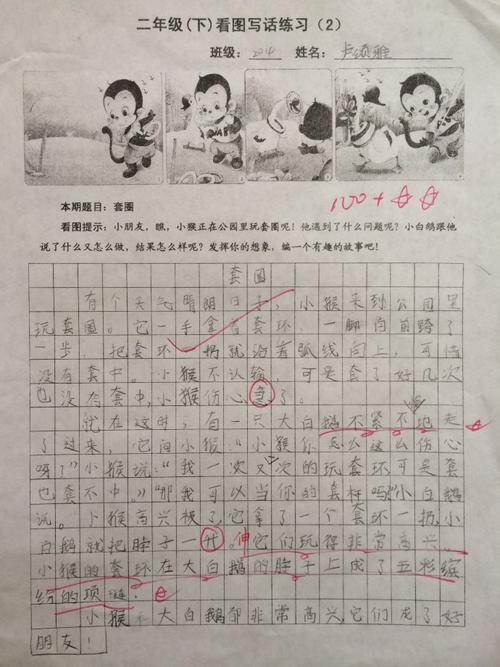 二年级(下)看图写话练习（2）
班级： 204 姓名： 卢颂雅
100+☆☆
本期题目：套圈
看图提示：小朋友，瞧，小猴正在公园里玩套圈呢！他遇到了什么问题呢？小白鹅跟他
说了什么又怎么做，结果怎么样呢？发挥你的想象，编一个有趣的故事吧！
套圈
有个天气晴朗日子，小猴来到公园里
玩套圈。它一手拿着套环，一脚向前跨了
一步，把套环一扔就沿着弧线向上，可惜
没有套中。小猴不认输，可是套了好几次
也没有套中，小猴伤心急了。
就在这时，有一只大白鹅不紧不地走
了过来，它问小猴：“小猴你怎么这么伤心
呀？”小猴说：“我一次又次的玩套环可是套
也套不中。”“那我可以当你的套杆吗？”小白鹅
说。小猴高兴极了，它拿了一个套环一扔，小
白鹅就把脖子一升。伸它们玩得非常高兴。
小猴的套环在大白鹅的脖子上成了五彩缤
纷的项链。
小猴和大白鹅都非常高兴，它们成了好
朋友！